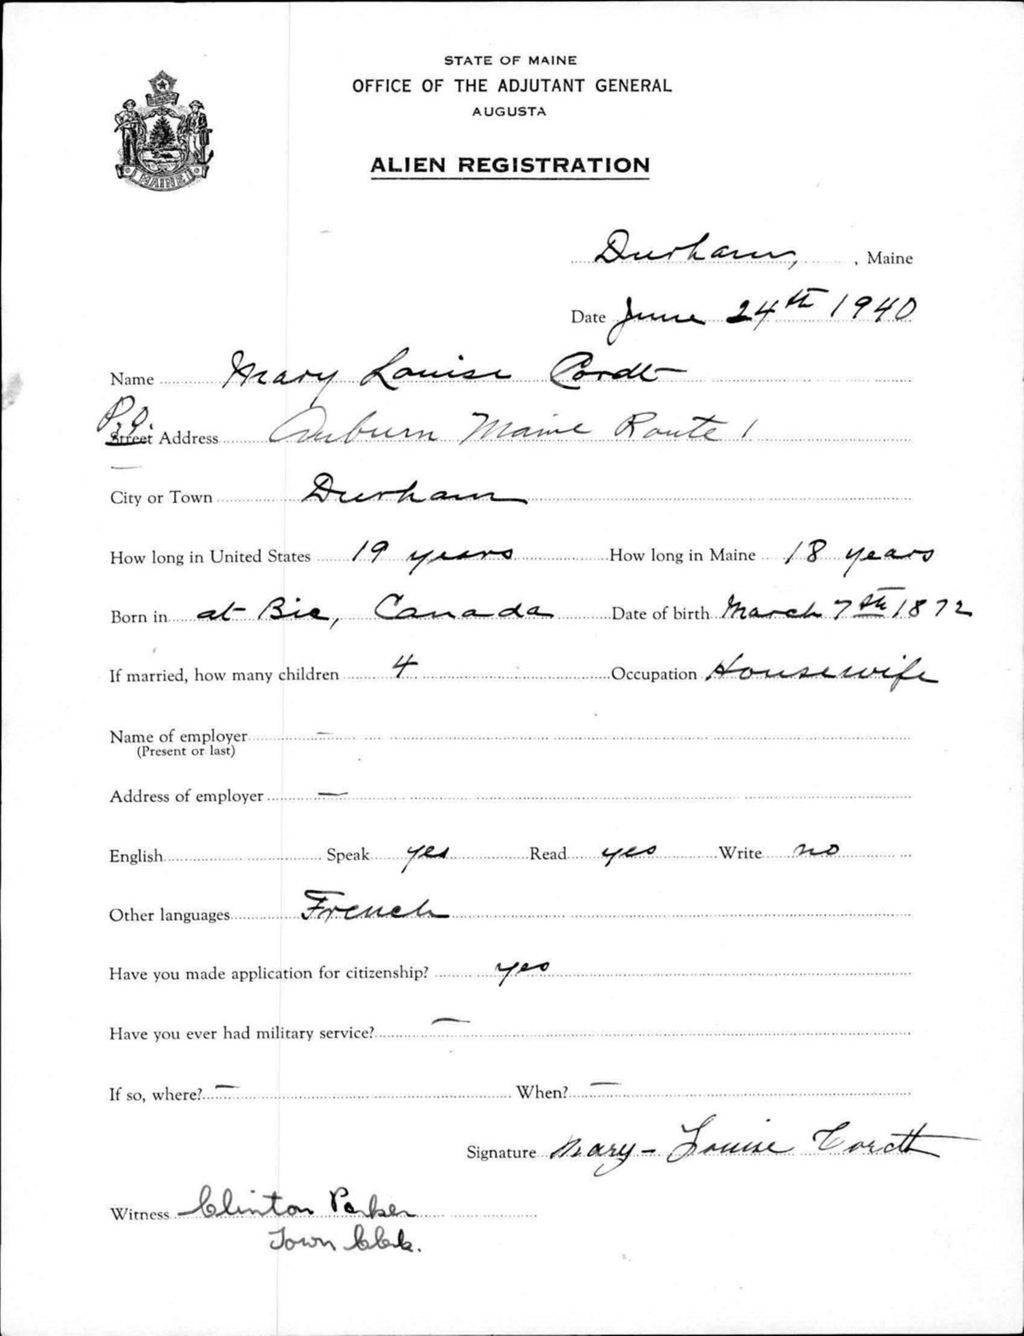 STATE OF MAINE
OFFICE OF THE ADJUTANT GENERAL
AUGUSTA
MAINE
ALIEN REGISTRATION
Durham, , Maine
Date June 24th 1940
Name Mary Louise Cordt
P.O.
Street Address Auburn Maine Route 1
City or Town Durham
How long in United States 19 years How long in Maine 18 years
Born in at Bic, Canada Date of birth March 7th 1872
If married, how many children 4 Occupation Housewife
Name of employer —
(Present or last)
Address of employer —
English Speak yes Read yes Write no
Other languages French
Have you made application for citizenship? yes
Have you ever had military service? —
If so, where? — When? —
Signature Mary - Louise Cordt
Witness Clinton Parker
Town Clerk.